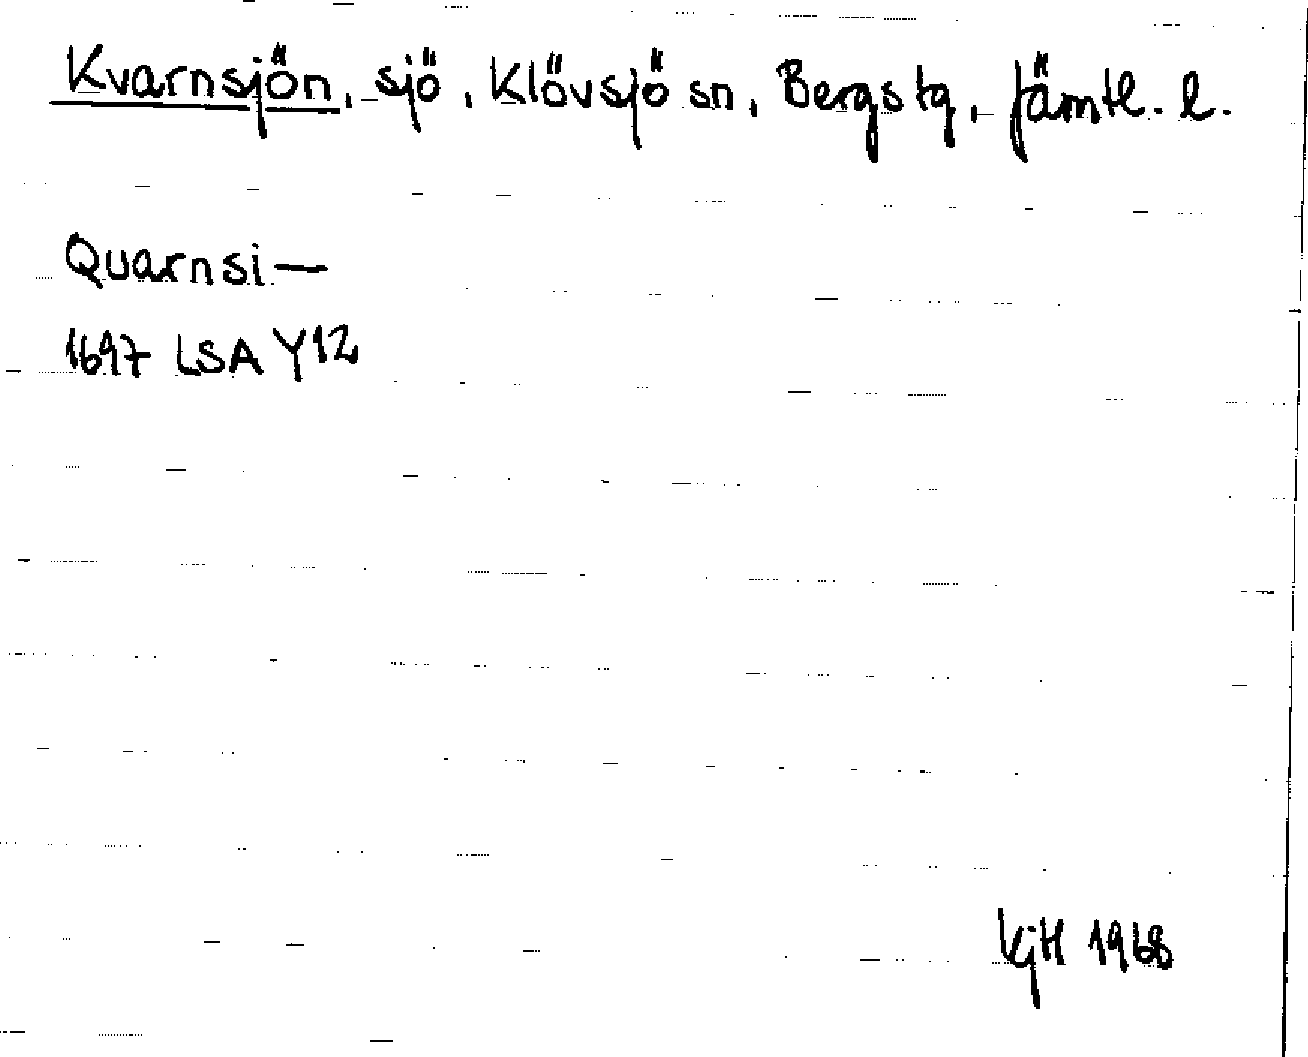 Kvarnsjön, sjö, Klövsjö sn, Bergs tg, Jämtl. l.
Quarnsi—
1697 LSA Y12
KjH 1968